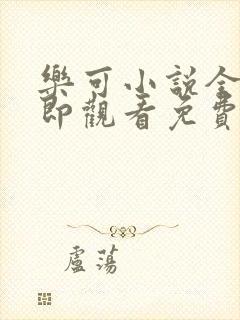 樂可小說全
即觀看免費
盧蕩